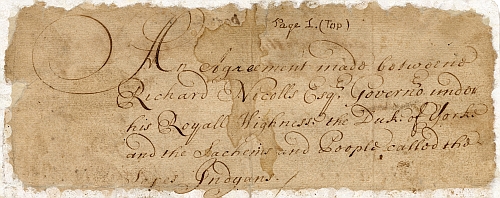 Page 1. (Top)
An Agreement made betweene
Richard Nicolls Esqr. Governor under
his Royall Highness: the Duke of Yorke
and the Sachems and People called the
Sopes Indyans./